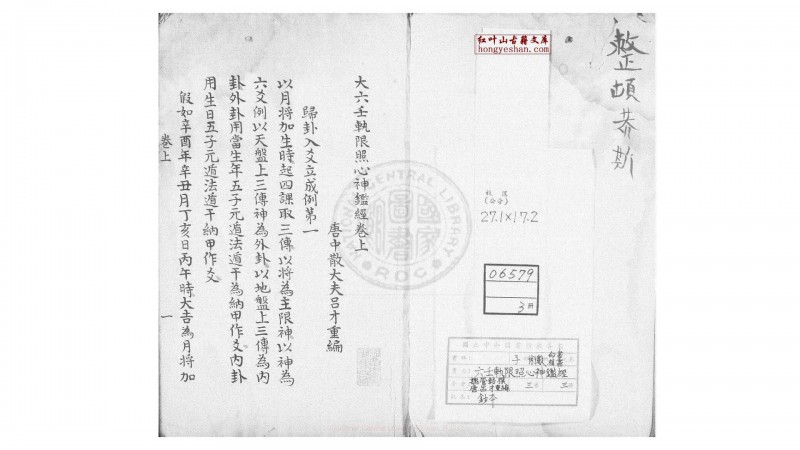 整頓恭斯
红叶山古籍文库
hongyeshan.com
(公分)
27.1×17.2
06579
3冊
子
六壬執限照心神鑑經
魏管輅撰
唐呂才重編
三
鈔本
大六壬執限照心神鑑經卷上
唐中散大夫呂才重編
歸卦入爻立成例第一
以月將加生時起四課取三傳以將為主限神以神為
六爻例以天盤上三傳神為外卦以地盤上三傳為內
卦外卦用當生年五子元遁法遁干為納甲作爻內卦
用生日五子元遁法遁干納甲作爻
假如辛酉年辛丑月丁亥日丙午時大吉為月將加
卷上
一
NATIONAL CENTRAL LIBRARY
R.O.C
國家圖書館